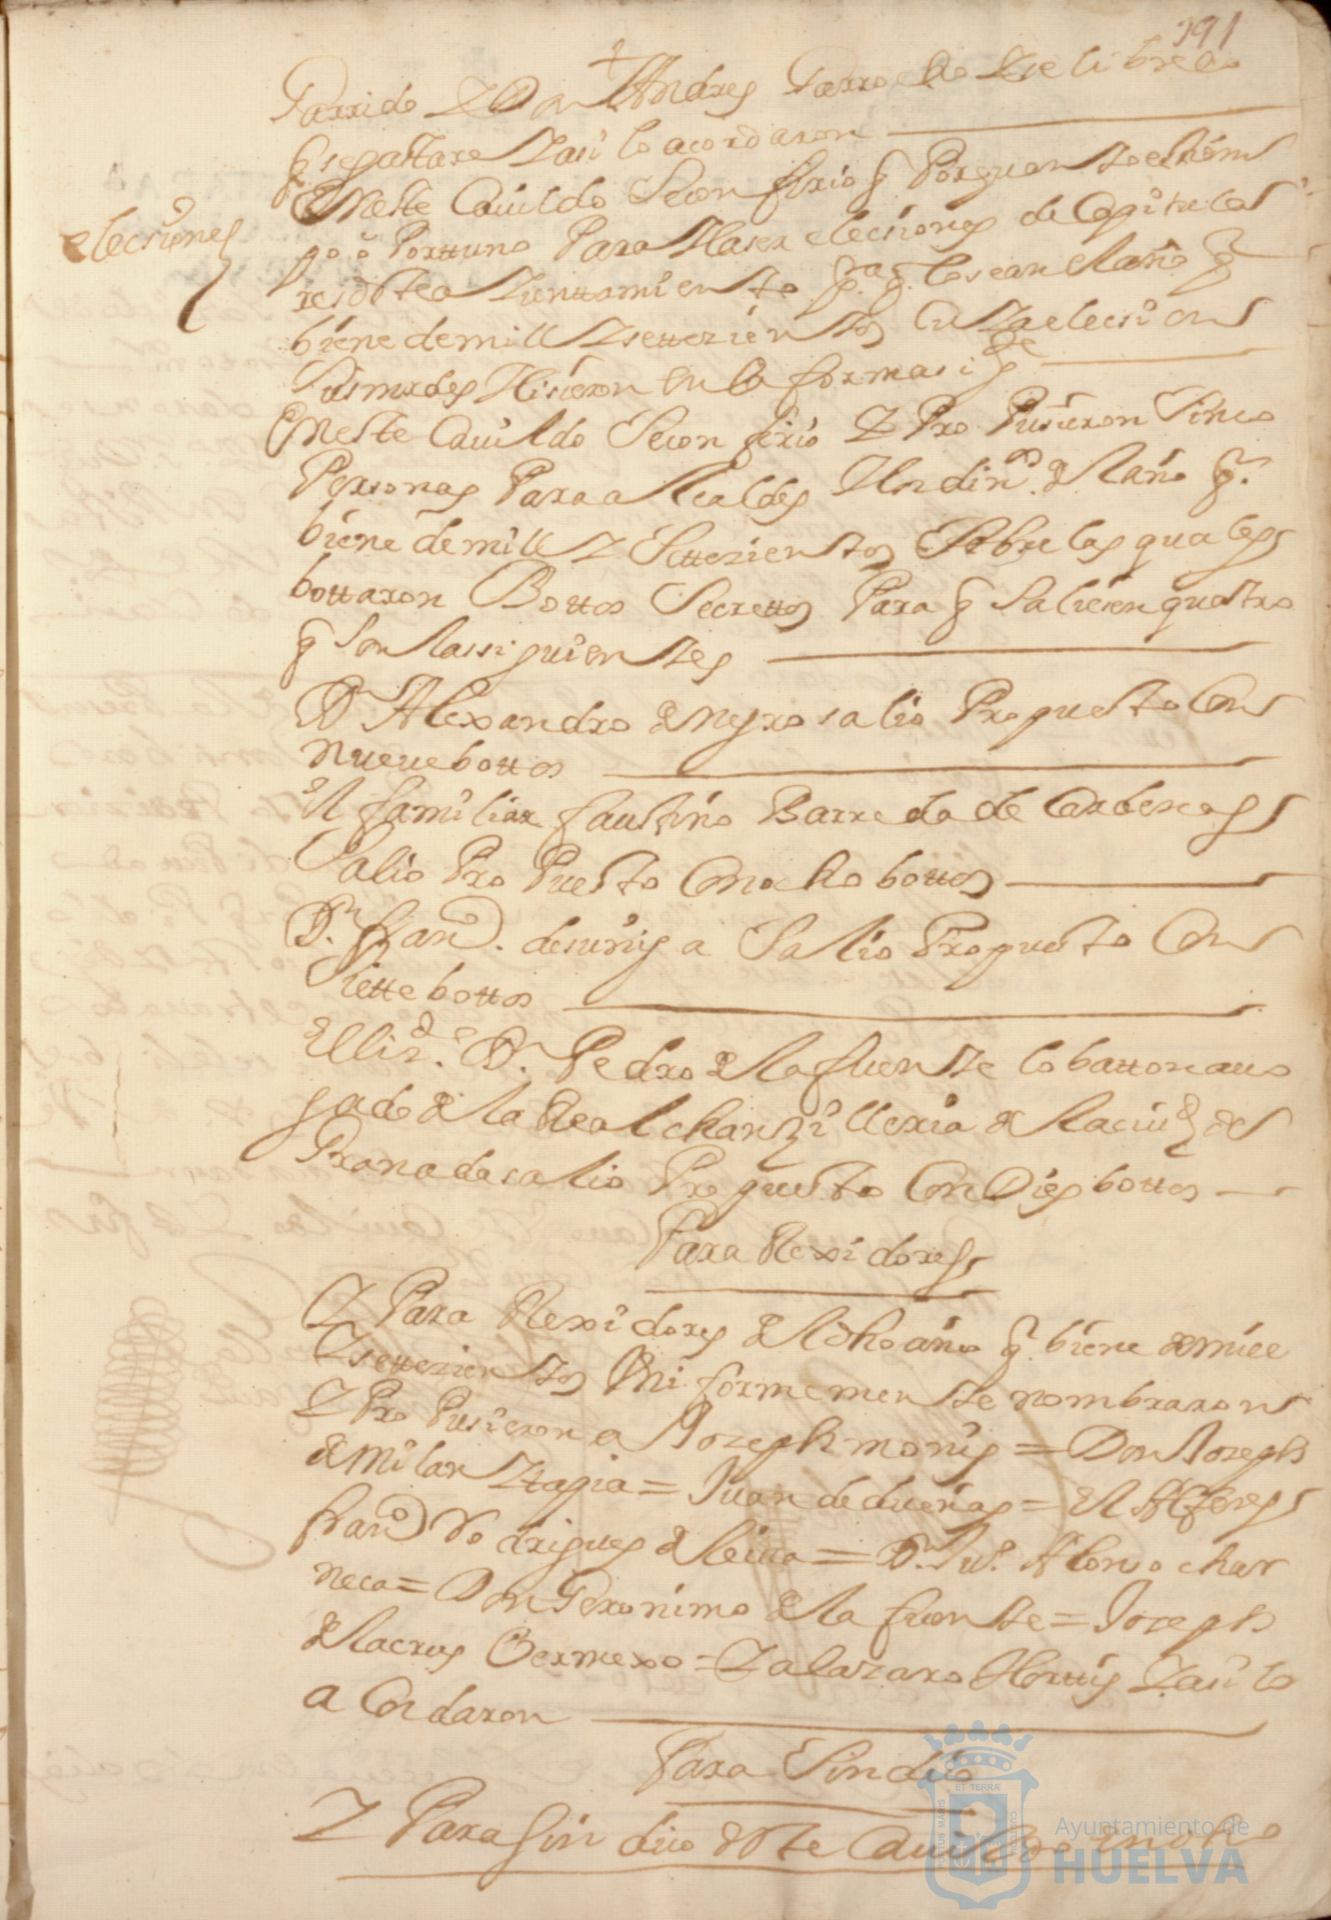 391
Garrido Y Don Andres Garrocho Y se libre lo
q se gattare Y asi lo acordaron
elecsiones
En este Cauildo Se con firio q Por quan to es tiem
po o Porttuno Para Haser elecsiones de Capitulares
de este a Yunttamiento Para q lo sean el año q
biene de mill Y settezientos Cu Ya elecsion
Sus mrdes Hisieron en la forma sigte
En este Cauildo Se con firio Y Pro Pusieron Sinco
Personas Para a lcaldes Hordins del año q
biene de mill Y Settezientos Sobre las quales
bottaron Bottos Secrettos Para q Saliesen quatro
q son las siguientes
Dn Alexandro de negro salio Propuesto Con
nueue bottos
el familiar faustino Barreda de Cardenas
Salio Pro Puesto Con ocho bottos
Dn Franco de suñiga Salio Propuesto Con
Siette botos
el lizdo Dn Pedro de la fuente lobatton auo
gado de la Real chanzilleria de la ciud de
Granada salio Propuesto Con Dies bottos
Para Rexidores
Y Para Rexidores del dho año q biene de mill
Y settezientos Vni formemente nombraron
Y Pro Pusieron a Joseph monis = Don Joseph
de milan Y tapia = Juan de dueñas = el Alferes
franco Ro drigues de leiua = Dn Juo Alonso char
neca = Don Geronimo de la fuente = Joseph
de la crus Bermexo = Y a lazaro Horttis Y asi lo
a Cordaron
Para Sindico
Y Para Sin dico deste Cauildo en dho
PORTUS MARIS ET TERRAE CUSTODIA
Ayuntamiento de
HUELVA